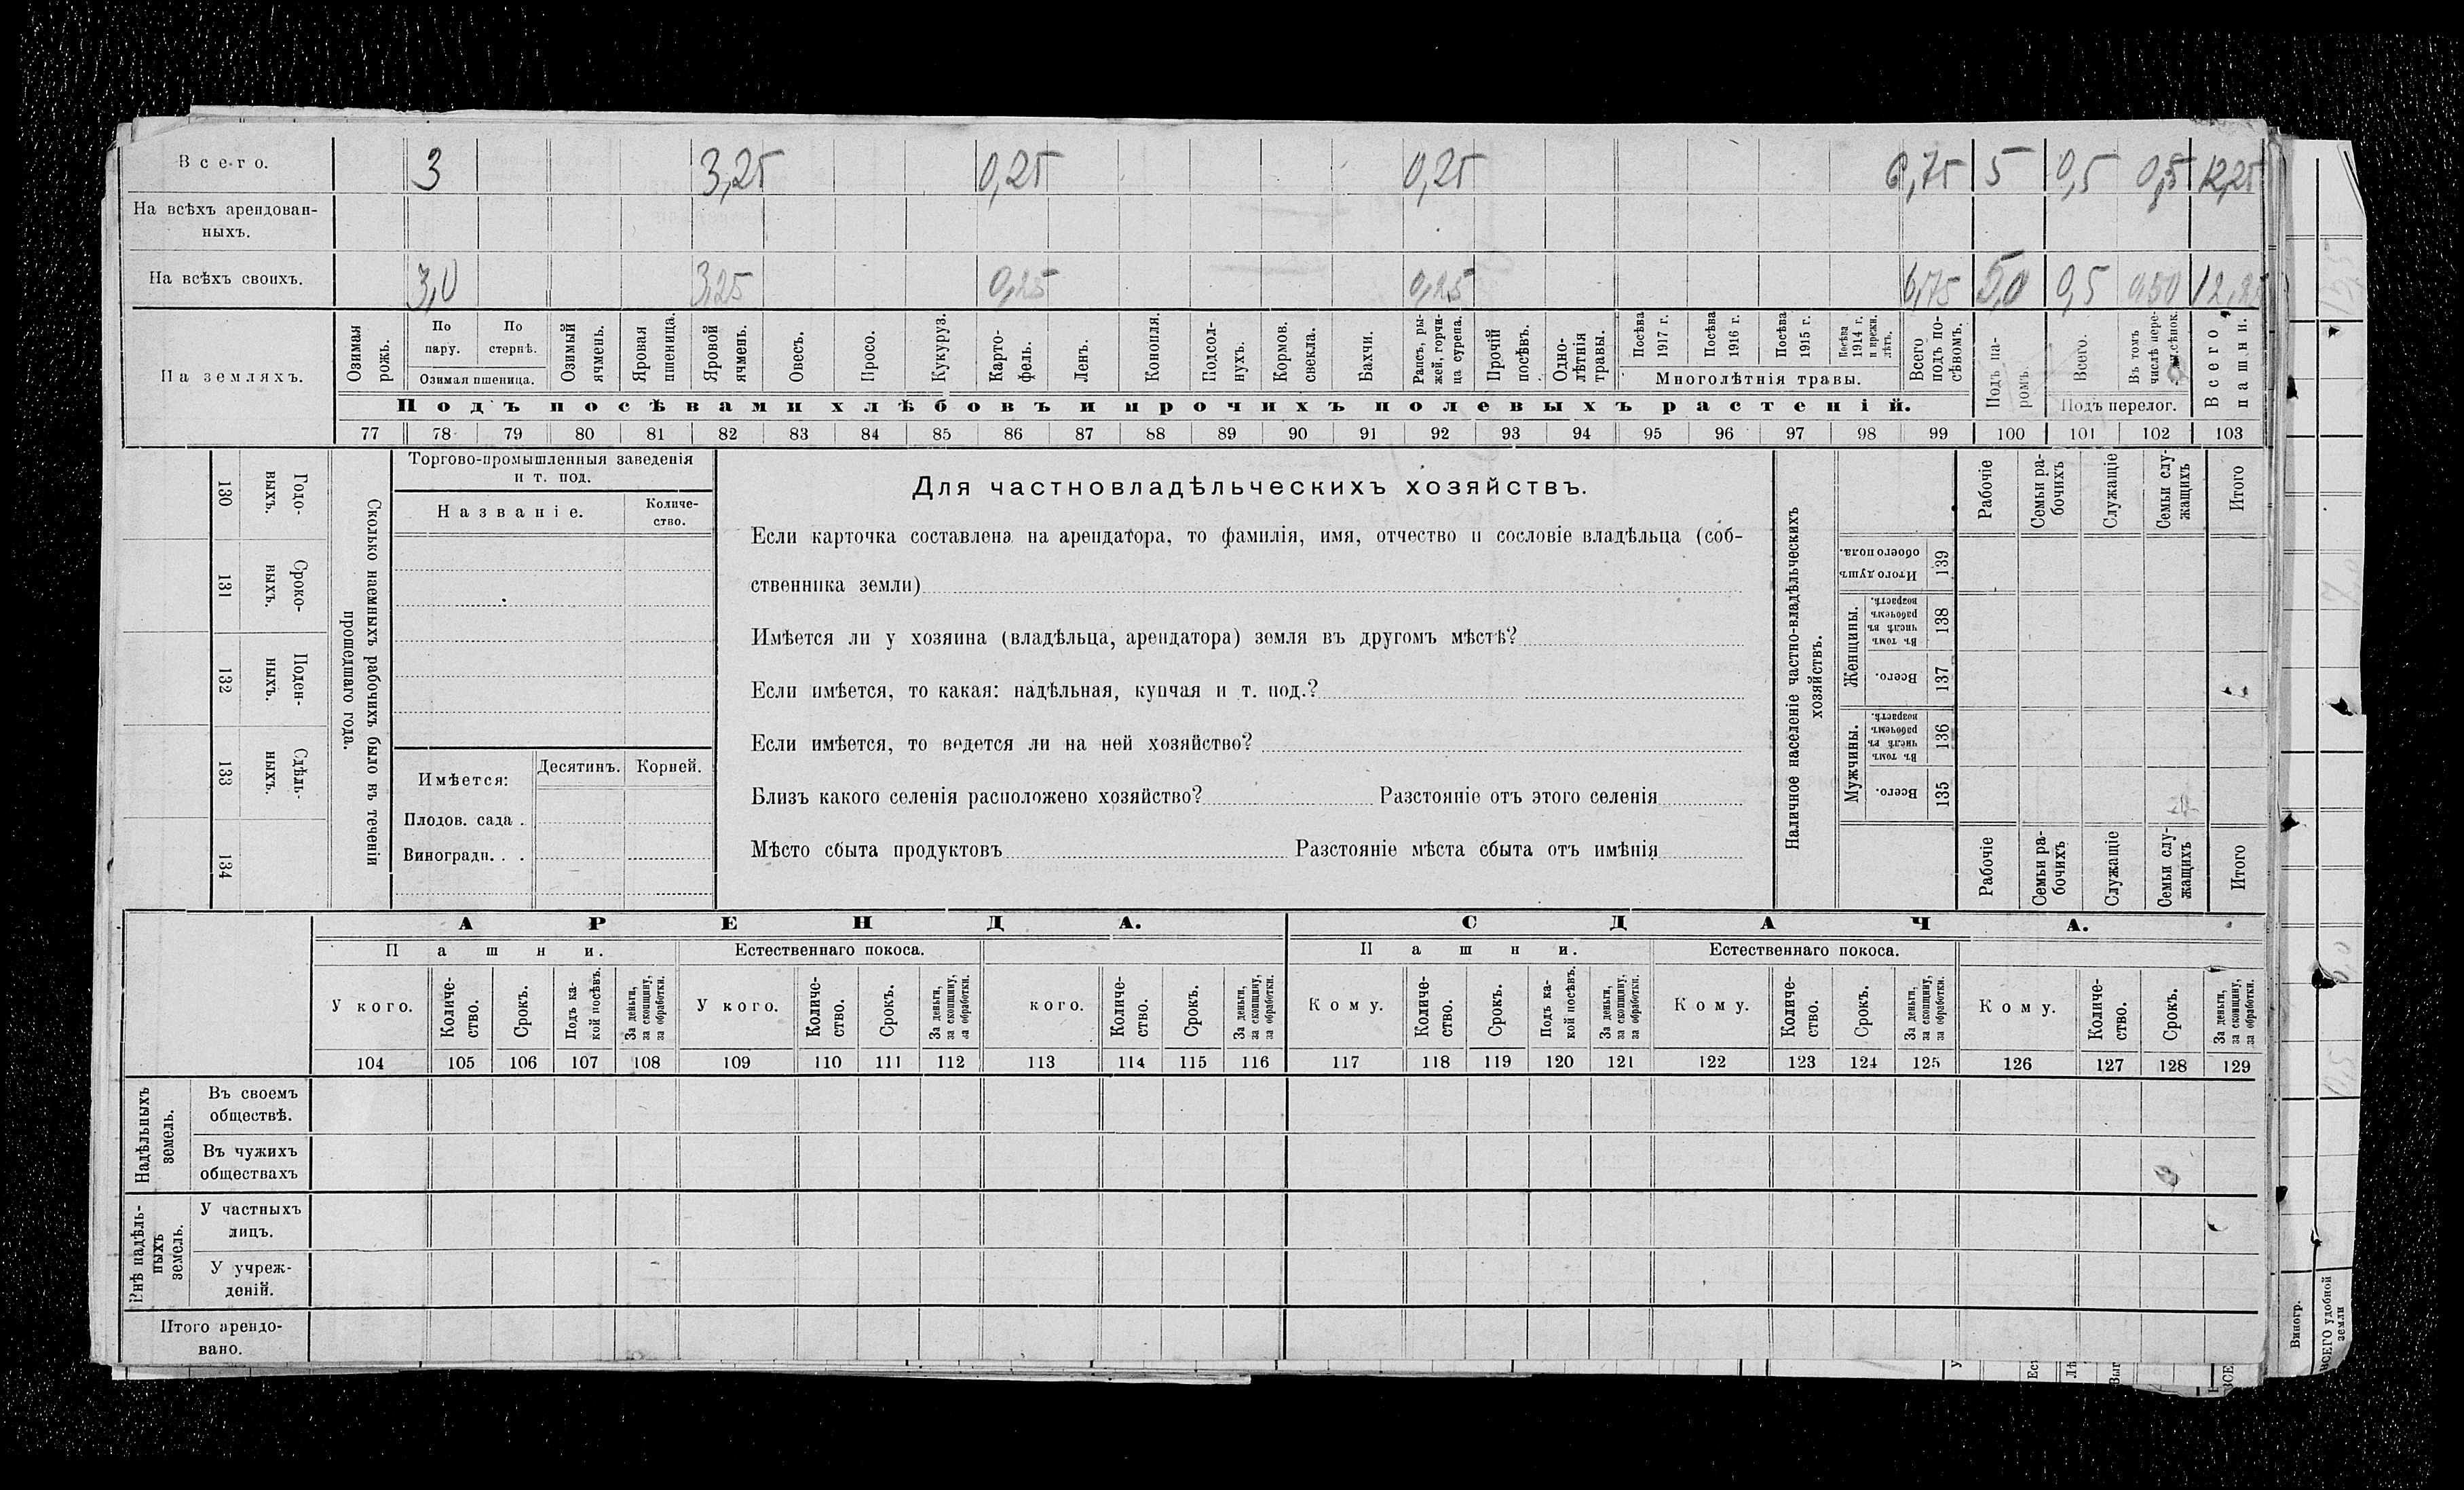 Всего. 3 3,25 0,25 0,25 6,75 5 0,5 0,5 12,25
На всѣхъ арендован-
ныхъ.
На всѣхъ своихъ. 3,0 3,25 0,25 0,25 6,75 5,0 0,5 0,50 12,25
На земляхъ.
Озимая рожь.
По пару.
По стернѣ.
Озимая пшеница.
Озимый ячмень.
Яровая пшеница.
Яровой ячмень.
Овесъ.
Просо.
Кукуруз.
Карто-
фель.
Ленъ.
Конопля.
Подсол-
нухъ.
Кормов. свекла.
Бахчи.
Рапсъ, ры-
жей, горчи-
ца сурепа.
Прочій посѣвъ.
Одно-
лѣтнія травы.
Посѣва 1917 г.
Посѣва 1916 г.
Посѣва 1915 г.
Посѣва 1914 г. и прежн. лѣтъ.
Многолѣтнія травы.
Всего подъ по-
сѣвомъ.
Подъ па-
ромъ.
Всего.
Въ томъ числѣ пере-
Подъ перелог.
Всего пашни.
Подъ посѣвами хлѣбовъ и прочихъ полевыхъ растеній.
77 78 79 80 81 82 83 84 85 86 87 88 89 90 91 92 93 94 95 96 97 98 99 100 101 102 103
130 Годо-
выхъ.
131 Сроко-
выхъ.
132 Поден-
ныхъ.
133 Сдѣль-
ныхъ.
134
Сколько наемныхъ рабочихъ было въ теченіи
прошедшаго года.
Торгово-промышленныя заведенія
и т. под.
Названіе.
Количе-
ство.
Имѣется: Десятинъ. Корней.
Плодов. сада .
Виноградн. . .
Для частновладѣльческихъ хозяйствъ.
Если карточка составлена на арендатора, то фамилія, имя, отчество и сословіе владѣльца (соб-
ственника земли)
Имѣется ли у хозяина (владѣльца, арендатора) земля въ другомъ мѣстѣ?
Если имѣется, то какая: надѣльная, купчая и т. под.?
Если имѣется, то ведется ли на ней хозяйство?
Близъ какого селенія расположено хозяйство? Разстояніе отъ этого селенія
Мѣсто сбыта продуктовъ Разстояніе мѣста сбыта отъ имѣнія
Наличное населеніе частно-владѣльческихъ
хозяйствъ.
Рабочіе
Семьи ра-
бочихъ
Служащіе
Семьи слу-
жащихъ
Итого
Итого душъ обоего пола. 139
Женщины.
Въ томъ числѣ въ рабочемъ возрастѣ. 138
Всего. 137
Мужчины.
Въ томъ числѣ въ рабочемъ возрастѣ. 136
Всего. 135
Рабочіе
Семьи ра-
бочихъ
Служащіе
Семьи слу-
жащихъ
Итого
АРЕНДА. СДАЧА.
Пашни. Естественнаго покоса. Пашни. Естественнаго покоса.
У кого.
Количе-
ство.
Срокъ.
Подъ ка-
кой посѣвъ.
За деньги, за скопщину, за обработки.
У кого.
Количе-
ство.
Срокъ.
За деньги, за скопщину, за обработки.
кого.
Количе-
ство.
Срокъ.
За деньги, за скопщину, за обработки.
Кому.
Количе-
ство.
Срокъ.
Подъ ка-
кой посѣвъ.
За деньги, за скопщину, за обработки.
Кому.
Количе-
ство.
Срокъ.
За деньги, за скопщину, за обработки.
Кому.
Количе-
ство.
Срокъ.
За деньги, за скопщину, за обработки.
104 105 106 107 108 109 110 111 112 113 114 115 116 117 118 119 120 121 122 123 124 125 126 127 128 129
Надѣльныхъ
земель.
Въ своемъ
обществѣ.
Въ чужихъ
обществахъ
Внѣ надѣль-
ныхъ
земель.
У частныхъ
лицъ.
У учреж-
деній.
Итого арендо-
вано.
Виногр.
ВСЕГО удобной
земли